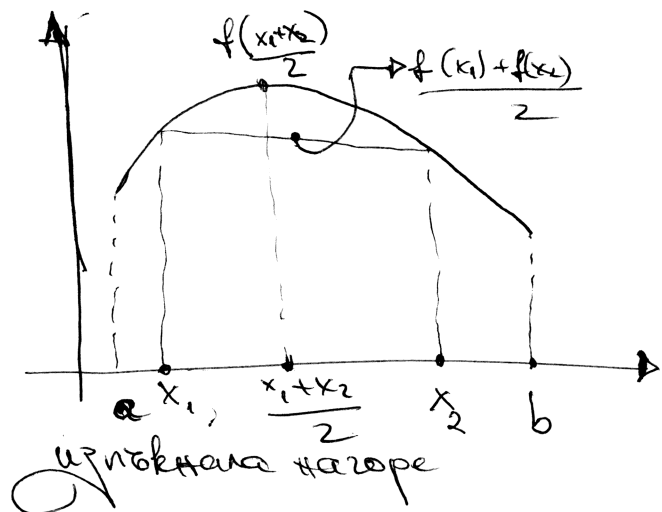 f(x₁+x₂)/2
f(x₁)+f(x₂)/2
a x₁, x₁+x₂/2 x₂ b
изпъкнала нагоре